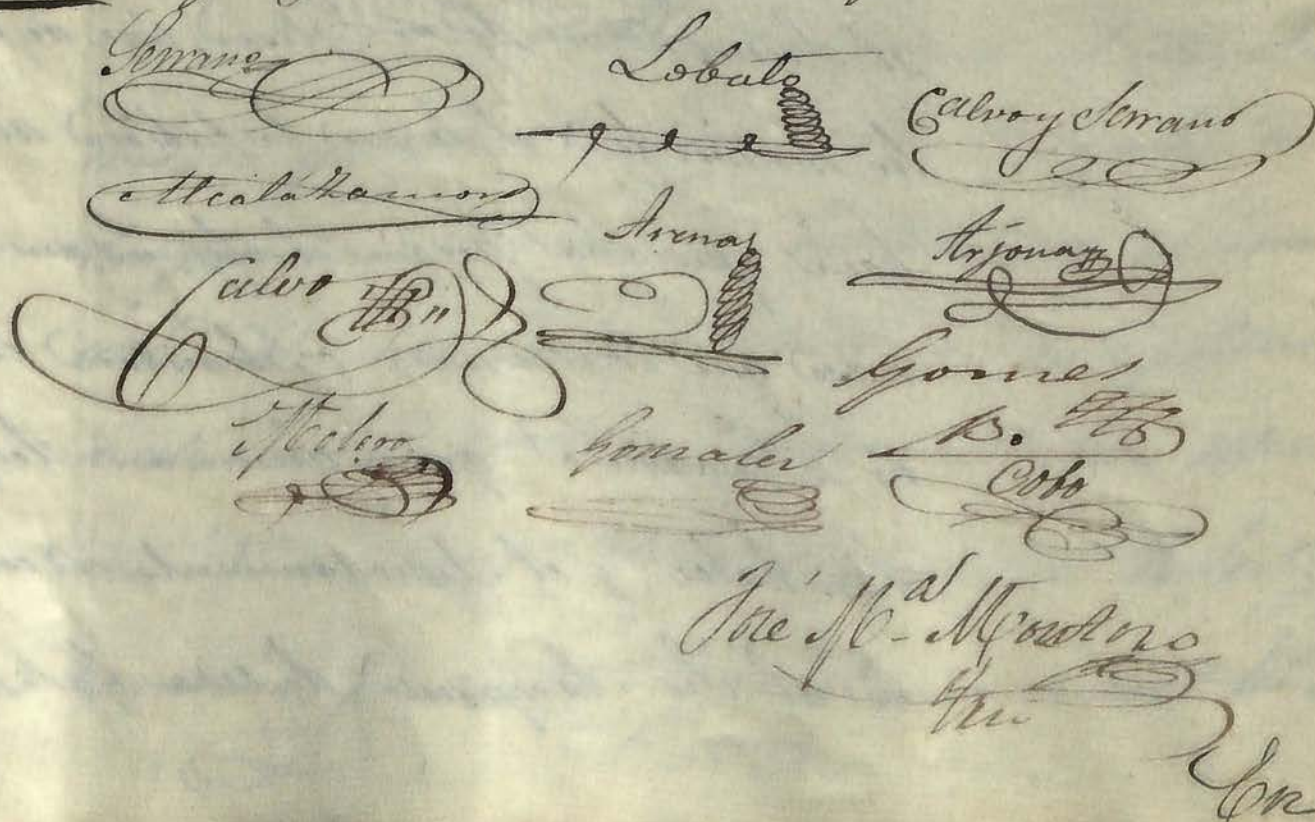 Serrano
Lobato
Calvo y Serrano
Alcalá Zamora
Arenas
Arjona
Calvo
Gomez
Melero
Gonzalez
B.
Cobo
José Mª
En